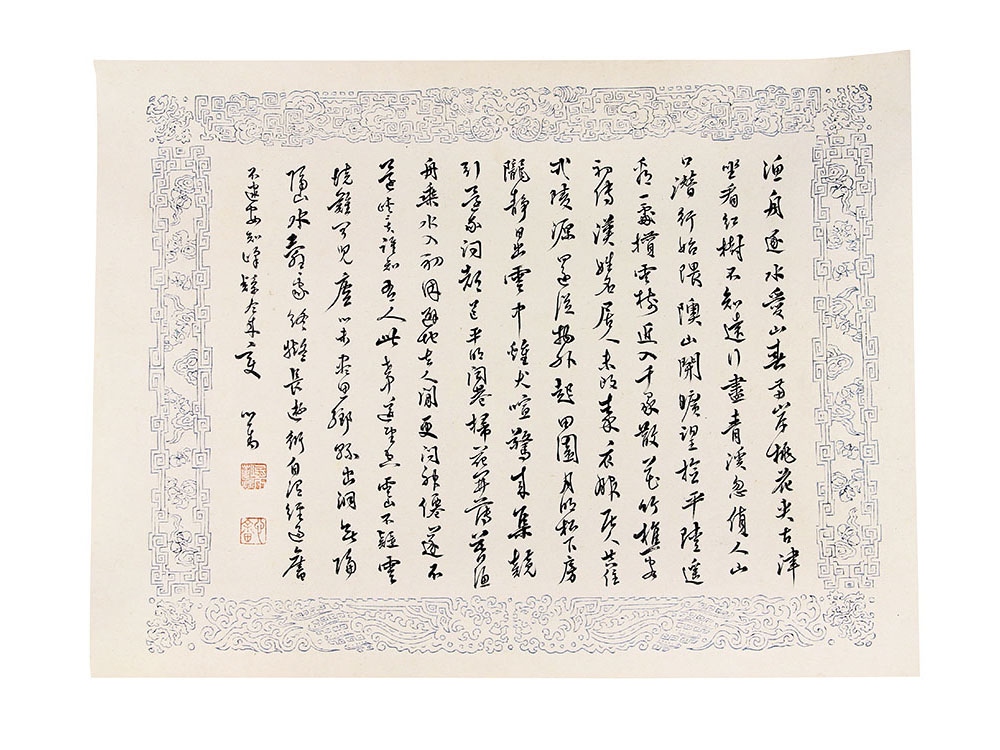 漁舟逐水愛山春兩岸桃花夾古津
坐看紅樹不知遠行盡青溪忽值人山
口潛行始隈隩山開曠望旋平陸遙
看一處攢雲樹近入千家散花竹樵客
初傳漢姓名居人未改秦衣服居人共住
武陵源還從物外起田園月明松下房
隴靜日出雲中雞犬喧驚來集競
引還家問都邑平明閭巷掃花開薄暮漁
舟乘水入初因避地去人間更問神僊遂不
還峽裏誰知有人此事遙望空雲山不疑靈
境難聞見塵心未盡思鄉縣出洞無隔
隔山水辭家終擬長遊衍自謂經過舊
不迷安知峰壑今來變 心畬